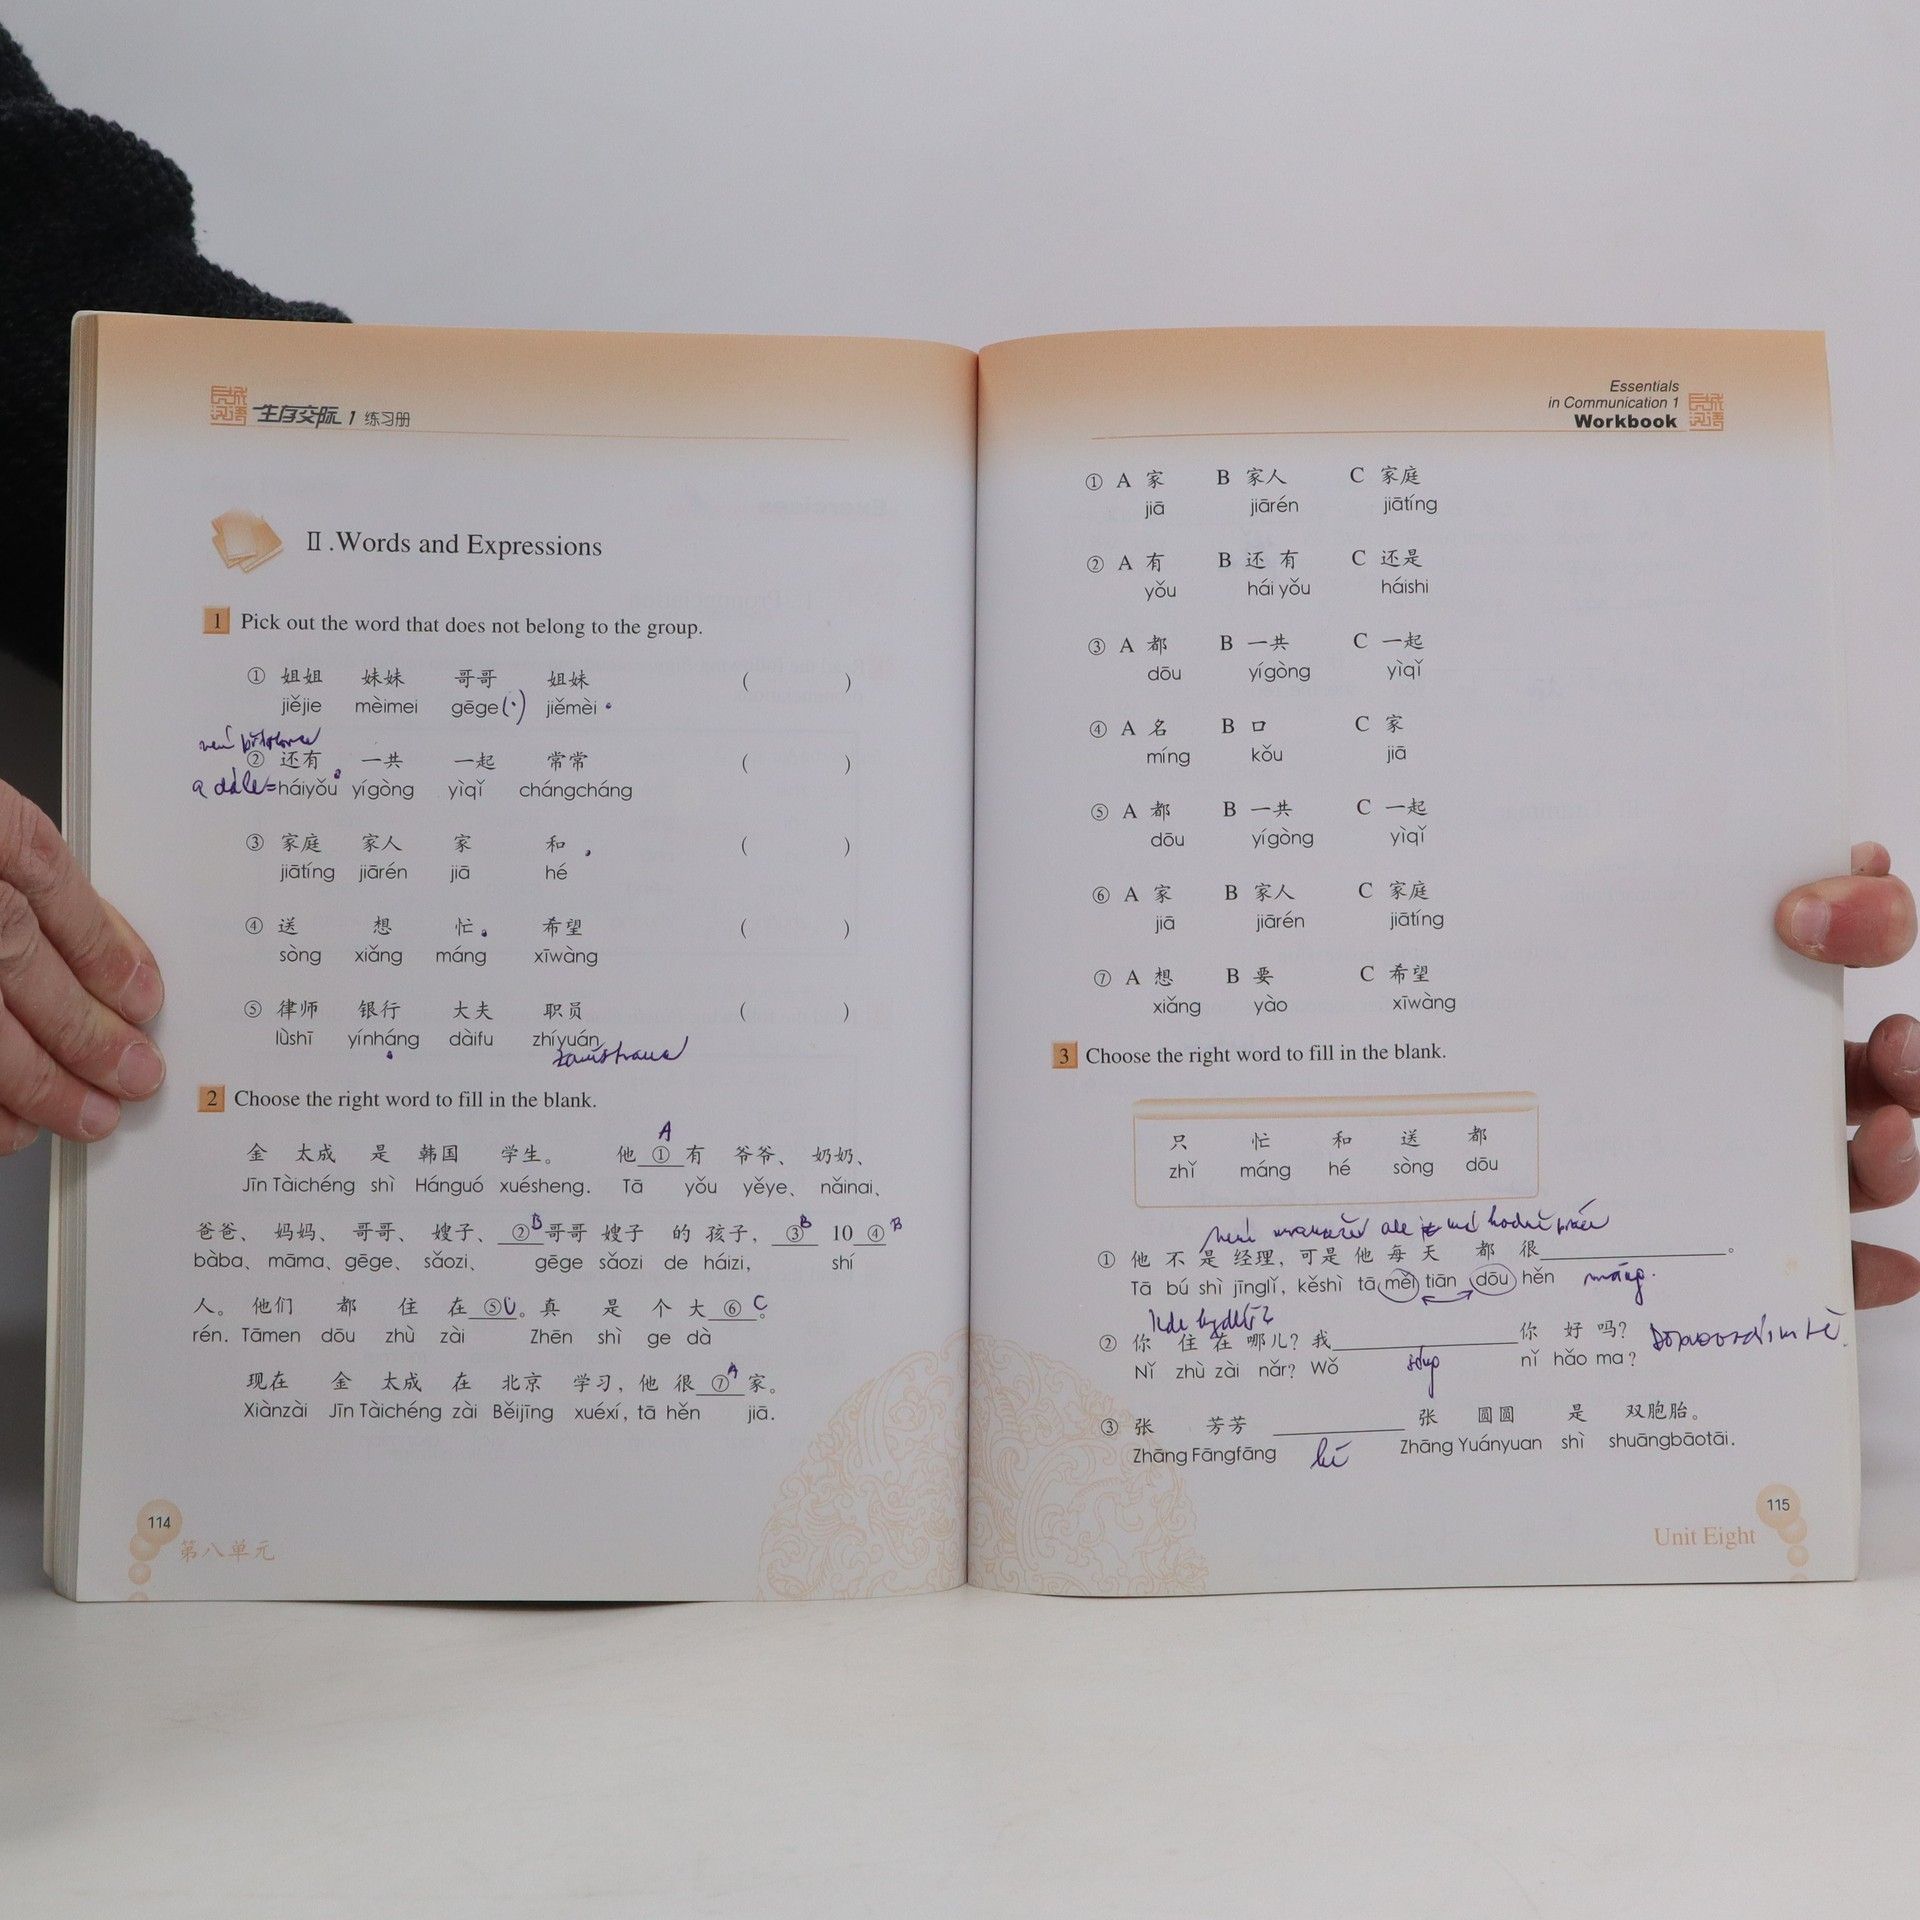 长城汉语
生存交际 1 练习册
Ⅱ.Words and Expressions
1 Pick out the word that does not belong to the group.
① 姐姐 妹妹 哥哥 姐妹 ( )
jiějie mèimei gēge (·) jiěmèi
není
② 还有 一共 一起 常常 ( )
a dále= háiyǒu yígòng yìqǐ chángcháng
③ 家庭 家人 家 和 ( )
jiātíng jiārén jiā hé
④ 送 想 忙 希望 ( )
sòng xiǎng máng xīwàng
⑤ 律师 银行 大夫 职员 ( )
lǜshī yínháng dàifu zhíyuán
2 Choose the right word to fill in the blank.
A
金 太成 是 韩国 学生。 他 ① 有 爷爷、 奶奶、
Jīn Tàichéng shì Hánguó xuésheng. Tā yǒu yěye、 nǎinai、
爸爸、 妈妈、 哥哥、 嫂子、 ② B 哥哥 嫂子 的 孩子, ③ B 10 ④ B
bàba、 māma、 gēge、 sǎozi、 gēge sǎozi de háizi, shí
人。 他们 都 住 在 ⑤ 。 真 是 个 大 ⑥ C 。
rén. Tāmen dōu zhù zài Zhēn shì ge dà
现在 金 太成 在 北京 学习, 他 很 ⑦ A 家。
Xiànzài Jīn Tàichéng zài Běijīng xuéxí, tā hěn jiā.
114
第八单元
Essentials
in Communication 1
Workbook
长城汉语
① A 家 B 家人 C 家庭
jiā jiārén jiātíng
② A 有 B 还 有 C 还是
yǒu hái yǒu háishi
③ A 都 B 一共 C 一起
dōu yígòng yìqǐ
④ A 名 B 口 C 家
míng kǒu jiā
⑤ A 都 B 一共 C 一起
dōu yígòng yìqǐ
⑥ A 家 B 家人 C 家庭
jiā jiārén jiātíng
⑦ A 想 B 要 C 希望
xiǎng yào xīwàng
3 Choose the right word to fill in the blank.
只 忙 和 送 都
zhǐ máng hé sòng dōu
není manažer ale má hodně práce
① 他 不 是 经理, 可是 他 每 天 都 很 。
Tā bú shì jīnglǐ, kěshì tā měi tiān dōu hěn máng.
kde bydlíš?
② 你 住 在 哪儿? 我 你 好 吗?
Nǐ zhù zài nǎr? Wǒ sòng nǐ hǎo ma?
③ 张 芳芳 张 圆圆 是 双胞胎。
Zhāng Fāngfāng hé Zhāng Yuányuan shì shuāngbāotāi.
115
Unit Eight